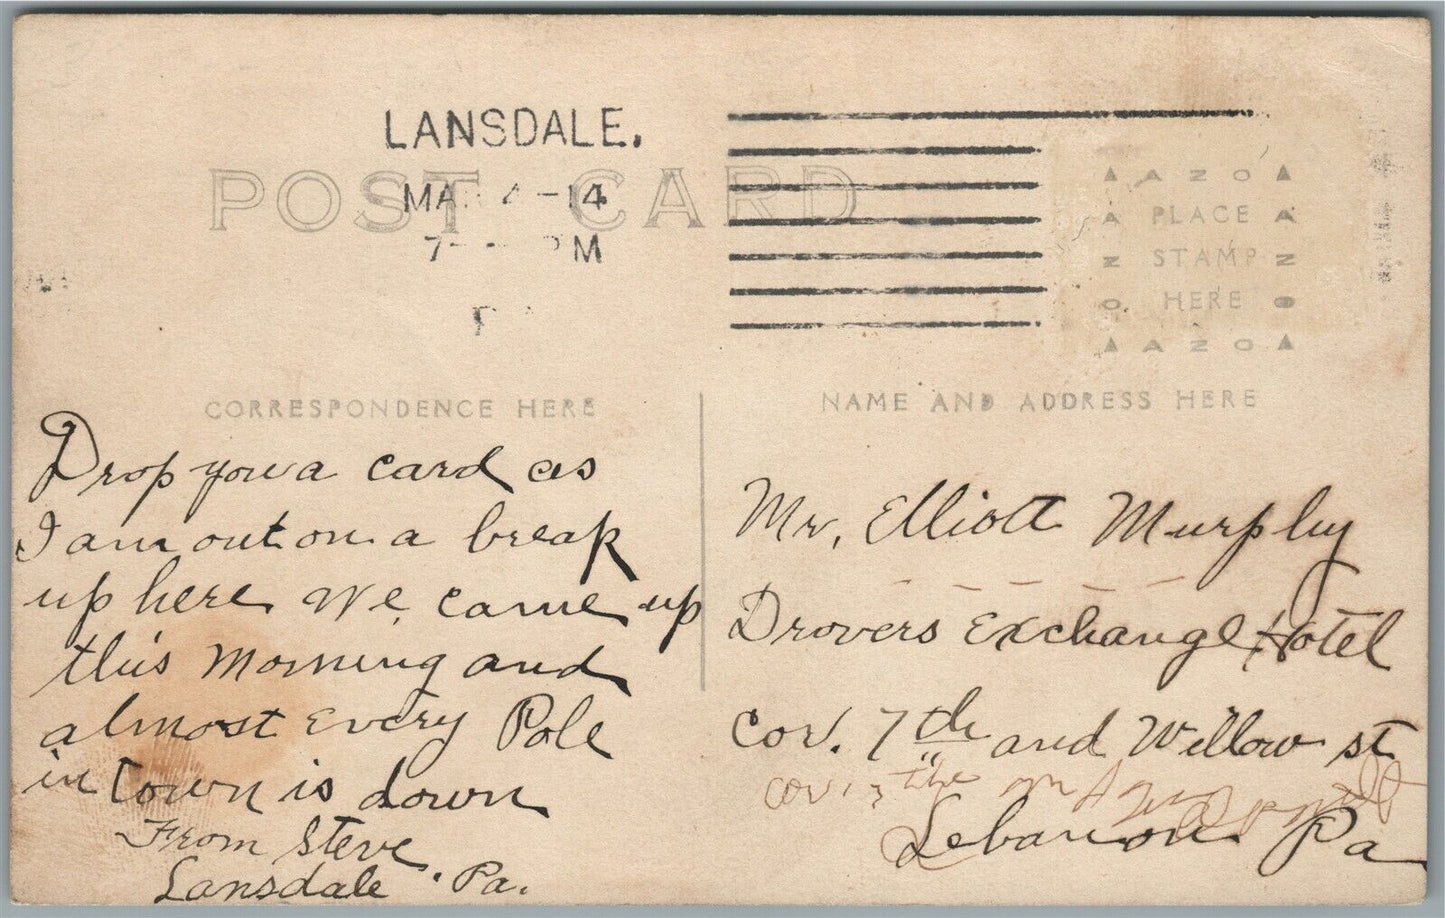 LANSDALE.
MA 4-14
7 PM
POST CARD
AZO
PLACE
STAMP
HERE
AZO
AZO
AZO
CORRESPONDENCE HERE
NAME AND ADDRESS HERE
Drop you a card as
I am out on a break
up here We came up
this morning and
almost every Pole
in town is down
From Steve
Lansdale, Pa.
Mr, Elliott Murphy
Drovers Exchange Hotel
cor. 7th and Willow st
cor. the
Lebanon Pa